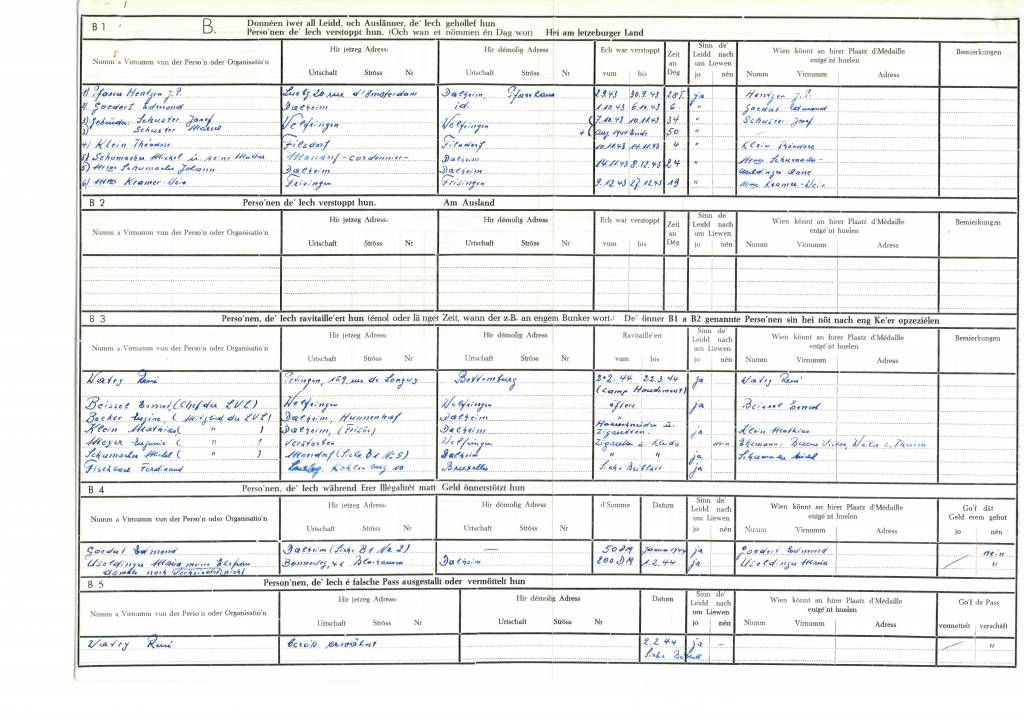 B 1 B. Donnéen iwer all Leidd, och Auslänner, de' Iech gehollef hun
Perso'nen de' Iech verstoppt hun. (Och wan et nömmen én Dag wor) Hei am letzeburger Land
Numm a Virnumm vun der Perso'n oder Organisatio'n Hir jetzeg Adress: Hir démolig Adress: Ech war verstoppt Zeit an Dég Sinn de' Leidd nach um Liewen Wien könnt an hirer Plaatz d'Médaille entgé'nt huelen Bemierkungen
Urtschaft Ströss Nr Urtschaft Ströss Nr vum bis jo nén Numm Virnumm Adress
1) Hentgen J.P. Luxbg, 20 rue d'Amsterdam Dalheim, Pfarrhaus 2.9.43 30.9.43 28T. ja Hentgen J.P.
2) Goedert Edmond Dalheim id. 1.10.43 6.10.43 6. " Goedert Edmond
3) Gebrüder Schuster Josef Welfringen Welfringen 7.10.43 10.11.43 34 " Schuster Josef
3) Schuster + Aug 1944 Ende 50 "
4) Klein Théodore Filsdorf Filsdorf 10.11.43 14.11.43 4 " Klein Théodore
5) Schumacher Michel u. seine Mutter Mondorf -cordonnier- Dalheim 14.11.43 8.12.43 24 " Mme Schumacher-
5) Mme Schumacher Johann Dalheim Dalheim Anne
6) Mme Kramer-Wein Frisingen Frisingen 9.12.43 27.12.43 19 " Mme Kramer-Wein
B 2 Perso'nen de' Iech verstoppt hun. Am Ausland
Numm a Virnumm vun der Perso'n oder Organisatio'n Hir jetzeg Adress: Hir démolig Adress: Ech war verstoppt Zeit an Dég Sinn de' Leidd nach um Liewen Wien könnt an hirer Plaatz d'Médaille entgé'nt huelen Bemierkungen
Urtschaft Ströss Nr Urtschaft Ströss Nr vum bis jo nén Numm Virnumm Adress
B 3 Perso'nen, de' Iech ravitaille'ert hun (émol oder länger Zeit, wann der z.B. an engem Bunker wort.) De' önner B1 a B2 genannte Perso'nen sin hei nöt nach eng Ke'er opzeziélen
Numm a Virnumm vun der Perso'n oder Organisatio'n Hir jetzeg Adress: Hir démolig Adress: Ravitaille'ert Sinn de' Leidd nach um Liewen Wien könnt an hirer Plaatz d'Médaille entgé'nt huelen Bemierkungen
Urtschaft Ströss Nr Urtschaft Ströss Nr vum bis jo nén Numm Virnumm Adress
Watry René Petingen, 159, rue de Longwy Bettemburg 2.2.44 22.3.44 ja Watry René
(Camp
Beissel Ernest (Chef der LVL) Welfringen Welfringen öfters ja Beissel Ernest
Becker Eugène ( Mitglied der LVL) Dalheim, Hunnenhof Dalheim "
Klein Mathias ( " ) Dalheim, (Frisör) Dalheim Haareschneiden u. Zigaretten ja Klein Mathias
Meyer Eugenie ( " ) Verstorben Welfringen Zigaretten u. Kleider nein Ehemann:
Schumacher Michel ( " ) Mondorf (Siehe B1 Nr 5) Dalheim " " ja Schumacher Michel
Fischbach Ferdinand Luxbg. Bruxelles Siehe Beiblatt ja
B 4 Perso'nen, de' Iech während Erer Illégalitét matt Geld önnerstötzt hun
Numm a Virnumm vun der Perso'n oder Organisatio'n Hir jetzeg Adress: Hir démolig Adress d'Somme Datum Sinn de' Leidd nach um Liewen Wien könnt an hirer Plaatz d'Médaille entgé'nt huelen Go'f dât Geld erem gefrot
Urtschaft Ströss Nr Urtschaft Ströss Nr jo nén Numm Virnumm Adress jo nén
Goedert Edmond Dalheim (Siehe B1 Nr 2) — 50 DM Januar 1944 ja Goedert Edmond nein
Useldinger Maria meine Ehefrau Bonneweg, Dalheim 200 DM 1.2.44 ja Useldinger Maria "
damals noch verheiratet nicht
B 5 Perso'nnen, de' Iech é falsche Pass ausgestallt oder vermöttelt hun
Numm a Virnumm vun der Perso'n oder Organisatio'n Hir jetzeg Adress: Hir démolig Adress Datum Sinn de' Leidd nach um Liewen Wien könnt an hirer Plaatz d'Médaille entgé'nt huelen Go'f de Pass
Urtschaft Ströss Nr Urtschaft Ströss Nr jo nén Numm Virnumm Adress vermettelt verschâft
Watry René bereits erwähnt 2.2.44 ja – "
Siehe Beiblatt